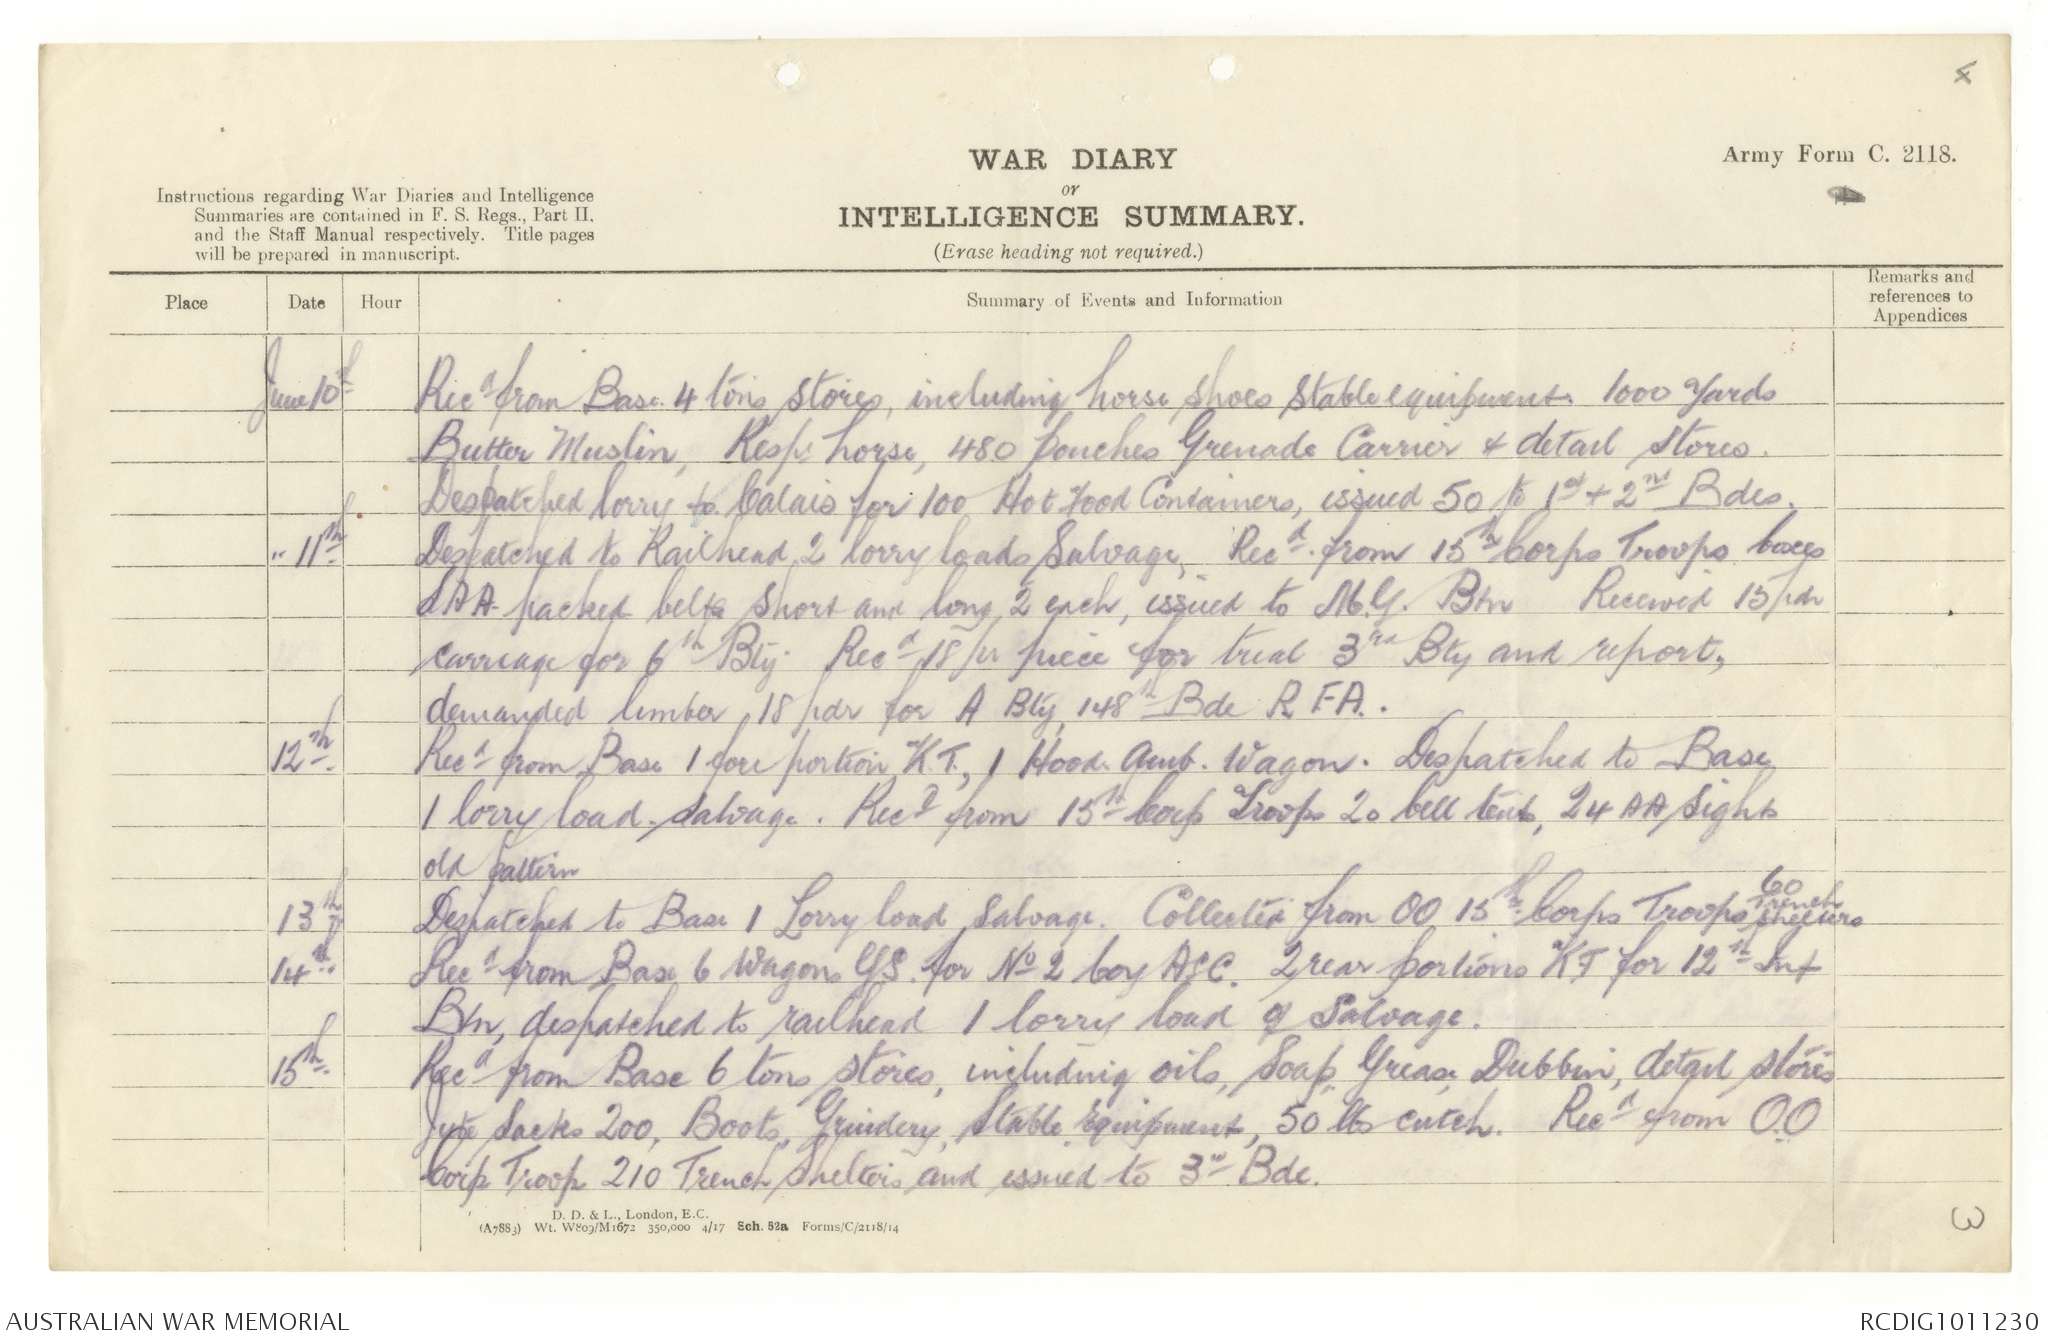 4
Army Form C. 2118.
WAR DIARY
or
INTELLIGENCE SUMMARY.
(Erase heading not required.)
Instructions regarding War Diaries and Intelligence
Summaries are contained in F. S. Regs., Part II.
and the Staff Manual respectively. Title pages
will be prepared in manuscript.
Place Date Hour Summary of Events and Information Remarks and
references to
Appendices
June 10th Recd from Base 4 tons stores, including horse shoes stable equipment. 1000 yards
Butter Muslin, Resp: horse, 480 pouches Grenade Carrier + detail stores.
Despatched lorry to Calais for 100 Hot Food Containers, issued 50 to 1st + 2nd Bdes.
" 11th Despatched to Railhead 2 lorry loads Salvage, Recd from 15th Corps Troops boxes
SAA packed belts short and long 2 each, issued to M.G. Btn Received 15pdr
carriage for 6th Bty. Recd 18pr piece for trial 3rd Bty and report,
demanded limber 18pdr for A Bty 148th Bde R.F.A.
12th Recd from Base 1 fore portion K.T., 1 Hood Amb. Wagon. Despatched to Base
1 lorry load salvage. Recd from 15th Corp Troops 20 bell tents, 24 AA Sights
old pattern
13th Despatched to Base 1 Lorry load Salvage. Collected from OO 15th Corps Troops 60 Trench Shelters
14th Recd from Base 6 Wagons GS for No 2 Coy ASC. 2 rear portions KT for 12th Inf
Btn, despatched to railhead 1 lorry load of Salvage.
15th Recd from Base 6 tons stores, including oils, Soap, Grease, Dubbin, detail stores
Jute Sacks 200, Boots, Grindery, Stable Equipment, 50 lbs cutch. Recd from O.O
Corp Troop 210 Trench Shelters and issued to 3rd Bde.
D. D. & L., London, E.C.
(A7883) Wt. W809/M1672 350,000 4/17 Sch. 52a Forms/C/2118/14
3
AUSTRALIAN WAR MEMORIAL RCDIG1011230